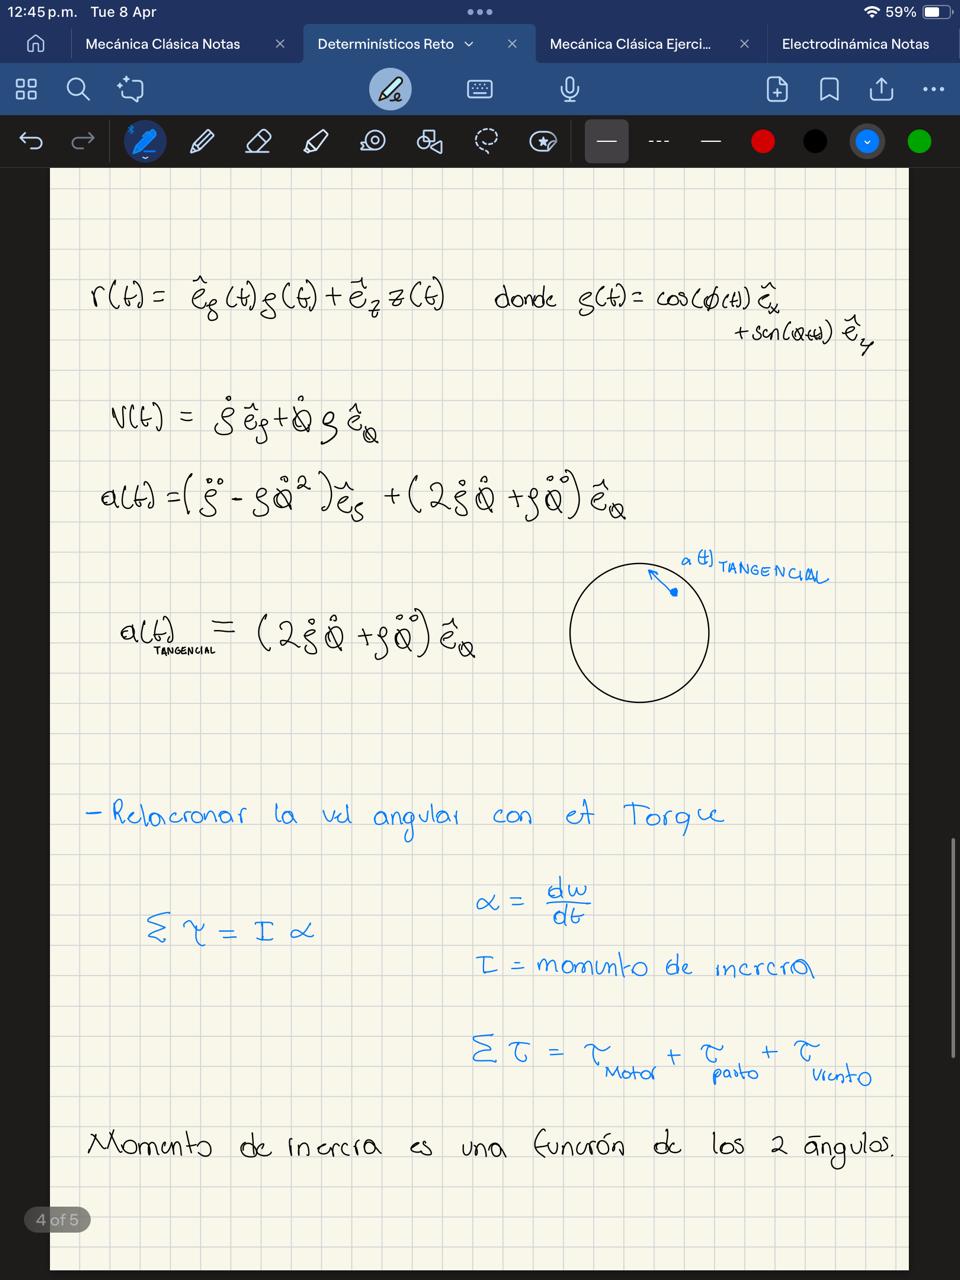 12:45 p.m. Tue 8 Apr 59%
Mecánica Clásica Notas Determinísticos Reto Mecánica Clásica Ejerci... Electrodinámica Notas
r(t) = ê_ρ(t)ρ(t) + ê_z z(t) donde ρ(t) = cos(ϕ(t)) ê_x
+ sen(ϕ(t)) ê_y
V(t) = ρ̇ ê_ρ + ϕ̇ ρ ê_ϕ
a(t) = (ρ̈ - ρϕ̇²) ê_ρ + (2ρ̇ϕ̇ + ρϕ̈) ê_ϕ
a(t) TANGENCIAL
a(t) TANGENCIAL = (2ρ̇ϕ̇ + ρϕ̈) ê_ϕ
- Relacionar la vel angular con el Torque
α = dw/dt
Σ τ = I α
I = momento de inercia
Σ τ = τ Motor + τ pasto + τ viento
Momento de inercia es una función de los 2 ángulos.
4 of 5